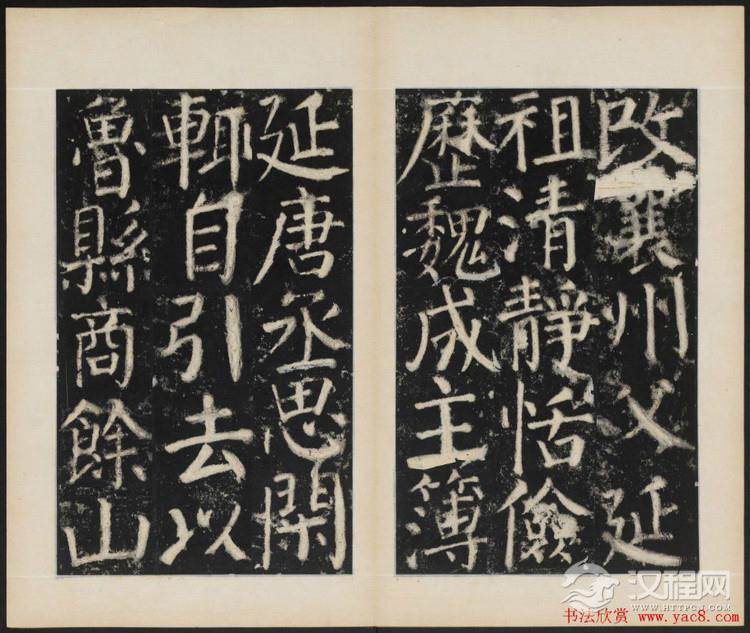 改襄州父延
祖清静恬儉
歷魏成主簿
延唐丞思閑
輒自引去以
魯縣商餘山
汉程网
WWW.HTTPCN.COM
书法欣赏 www.yac8.com